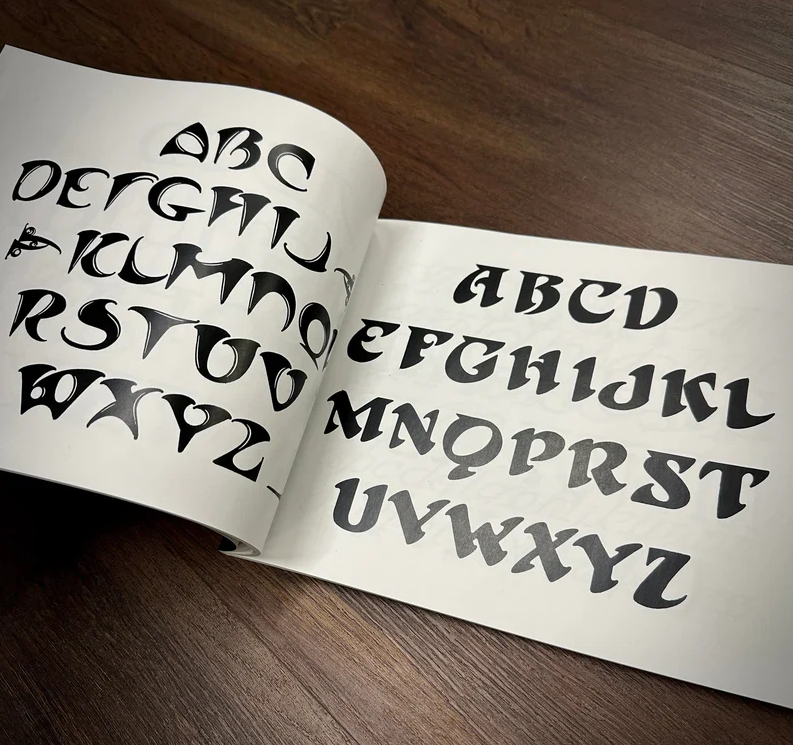 ABC
DEFGHIJ
KLMNO
RSTUV
WXYZ
ABCD
EFGHIJKL
MNOPRST
UVWXYZ